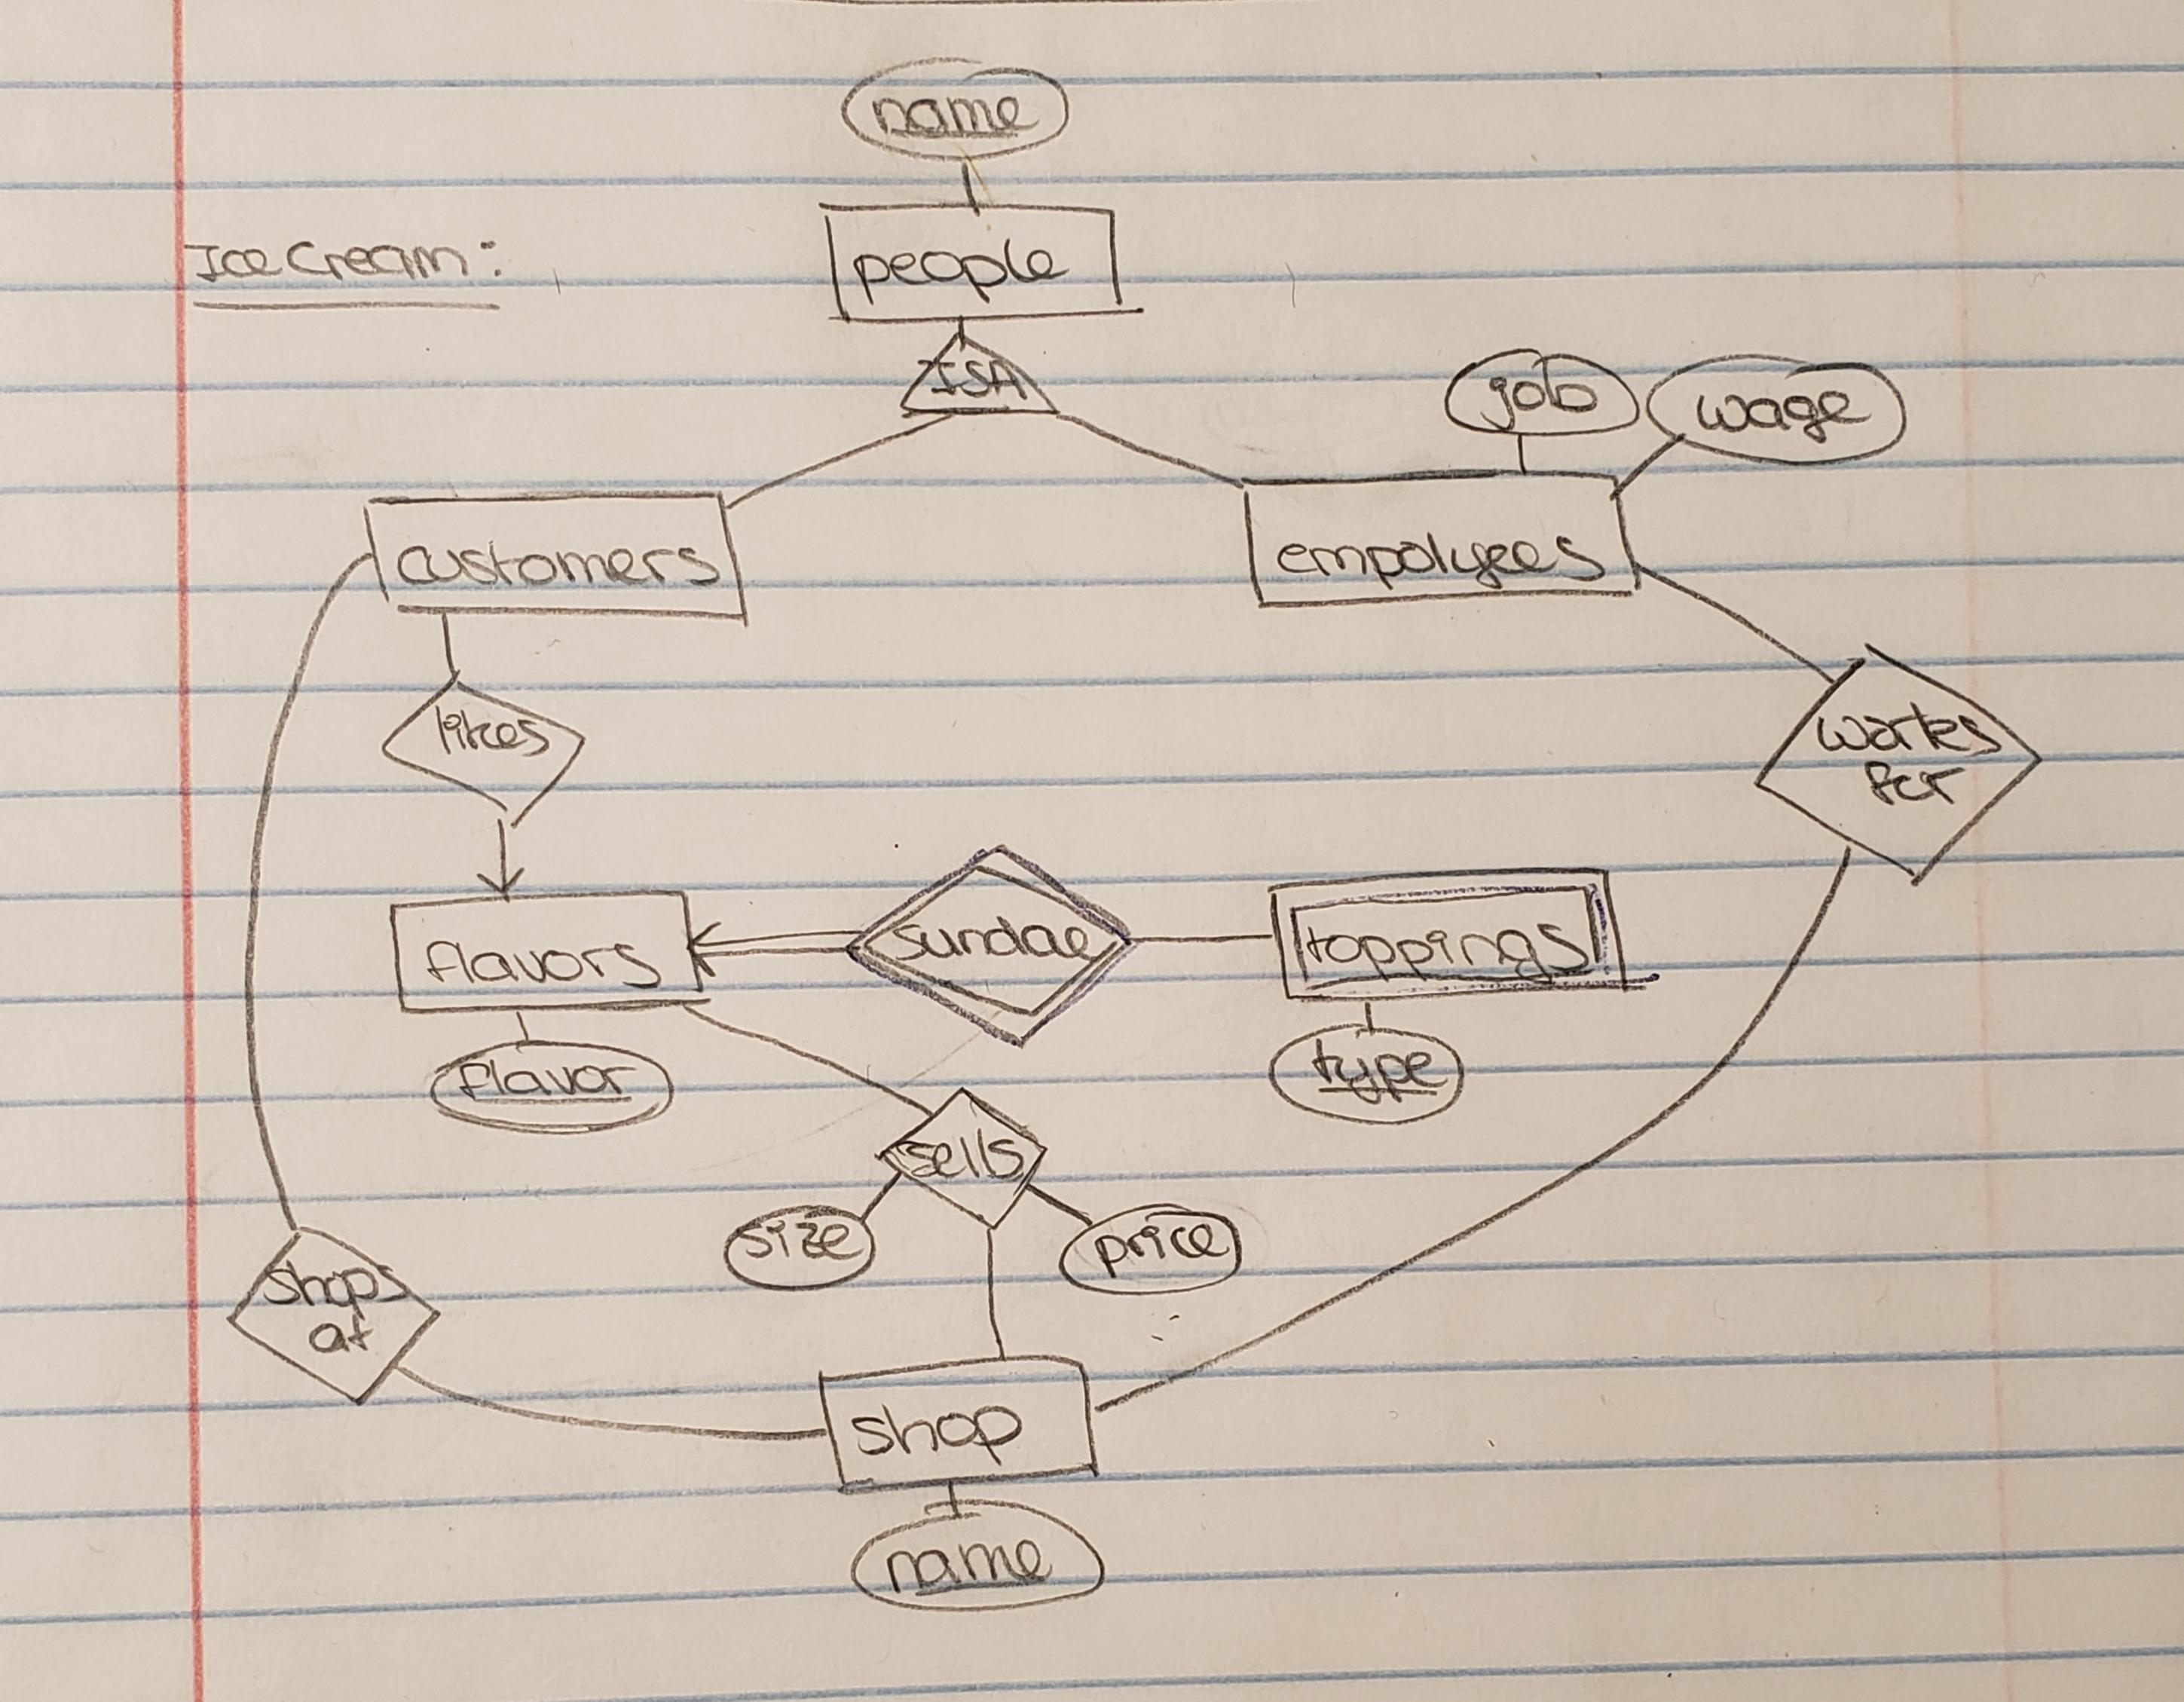 name
Ice Cream:
people
ISA
job
wage
customers
empolyees
likes
workes
for
flavors
sundae
toppings
flavor
type
sells
size
price
shops
at
shop
name